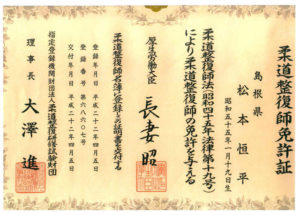 柔道整復師免許証
島根県
松本恒平
昭和五十五年一月十九日生
柔道整復師法(昭和四十五年法律第十九号)
により柔道整復師の免許を与える
厚生労働大臣
長妻昭
柔道整復師名簿に登録しこの証明書を交付する
登録年月日 平成二十二年四月五日
登録番号 第六八六〇七号
交付年月日 平成二十二年四月五日
指定登録機関財団法人柔道整復研修試験財団
理事長
大澤進